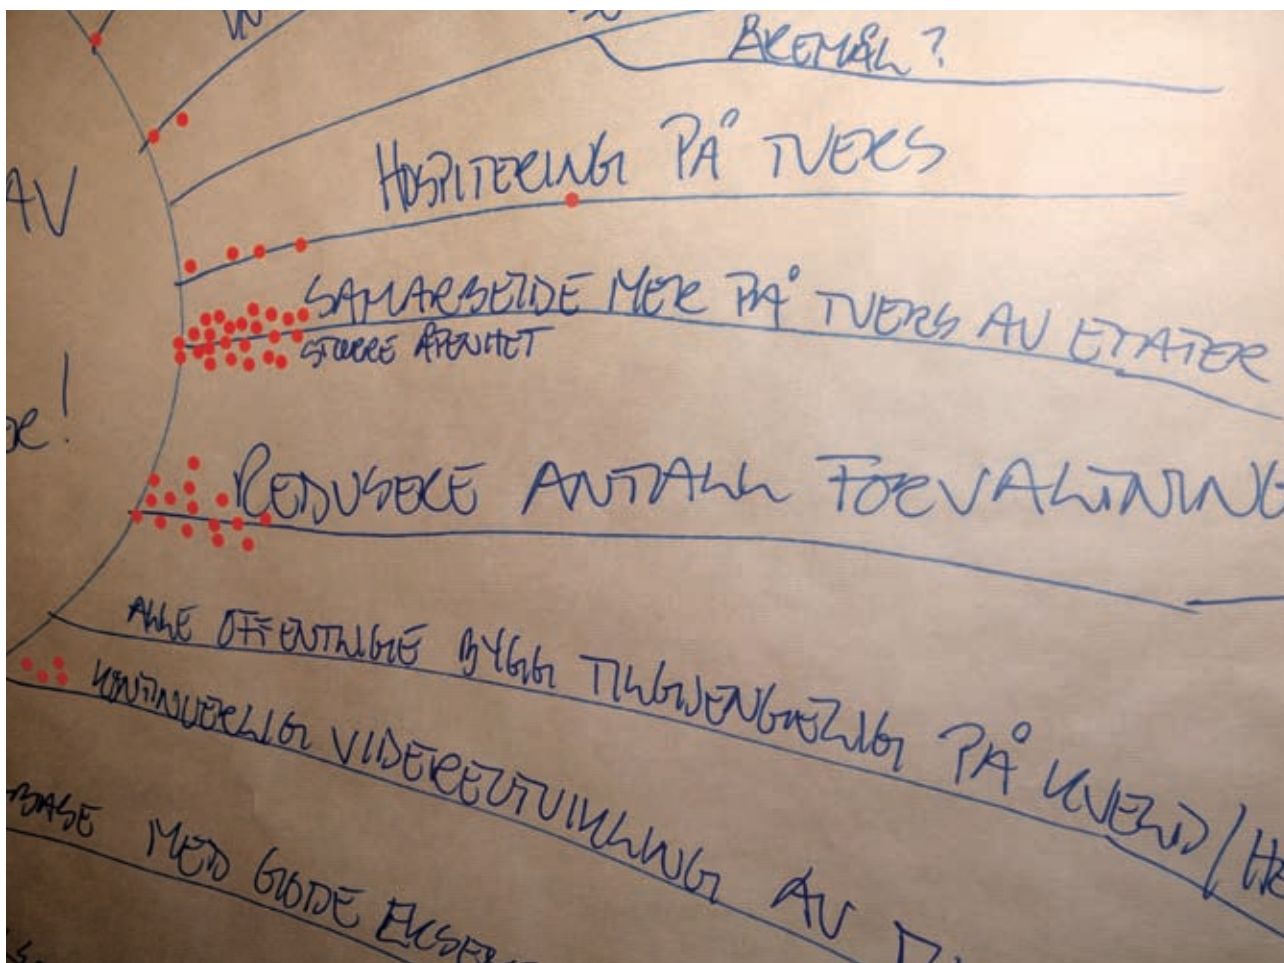 ÅREMÅL?
AV
HOSPITERING PÅ TVERS
SAMARBEIDE MER PÅ TVERS AV ETATER
STØRRE ÅPENHET
REDUSERE ANTALL FORVALTNING
ALLE OFFENTLIGE BYGG TILGJENGELIG PÅ KVELD/HE
KONTINUERLIG VIDEREUTVIKLING AV
BASE MED GODE EKSE